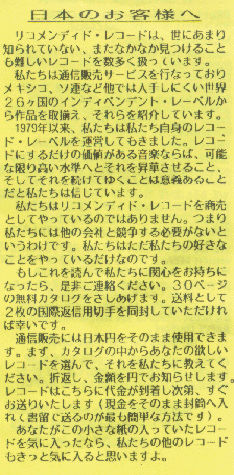 日本のお客様へ
リコメンディド・レコードは、世にあまり
知られていない、またなかなか見つけること
も難しいレコードを数多く扱っています。
私たちは通信販売サービスを行なっており
メキシコ、ソ連など他では入手しにくい世界
26ヶ国のインディペンデント・レーベルか
ら作品を取揃え、それらを紹介しています。
1979年以来、私たちは私たち自身のレコー
ド・レーベルを運営してもきました。レコー
ドにするだけの価値がある音楽ならば、可能
な限り高い水準へとそれを昇華させること、
そしてそれを続けてゆくことは意義あること
だと私たちは信じています。
私たちはリコメンディド・レコードを商売
としてやっているのではありません。つまり
私たちには他の会社と競争する必要がないと
いうわけです。私たちはただ私たちの好きな
ことをやっているだけなのです。
もしこれを読んで私たちに関心をお持ちに
なったら、是非ご連絡ください。30ページ
の無料カタログをさしあげます。送料として
2枚の国際返信用切手を同封していただけれ
ば幸いです。
通信販売には日本円をそのまま使用できま
す。まず、カタログの中からあなたの欲しい
レコードを選んで、それを私たちに教えてく
ださい。折返し、金額を円でお知らせします。
レコードはこちらに代金が到着し次第、すぐ
お送りいたします(現金をそのまま封筒へ入
れて書留で送るのが最も簡単な方法です)。
あなたがこの小さな紙の入っていたレコー
ドを気に入ったなら、私たちの他のレコード
もきっと気に入ると思いますよ。